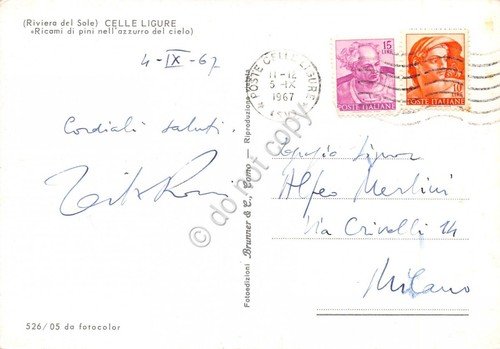 (Riviera del Sole) CELLE LIGURE
«Ricami di pini nell'azzurro del cielo)
4-IX-67
Cordiali saluti.
POSTE CELLE LIGURE
11-12
5-IX
1967
15
LIRE
POSTE ITALIANE
10
LIRE
POSTE ITALIANE
Signor
Alfeo Merlini
Via Crivelli 14
Milano
Fotoedizioni Brunner & C., Como - Riproduzione vietata
526/05 da fotocolor
© do not copy